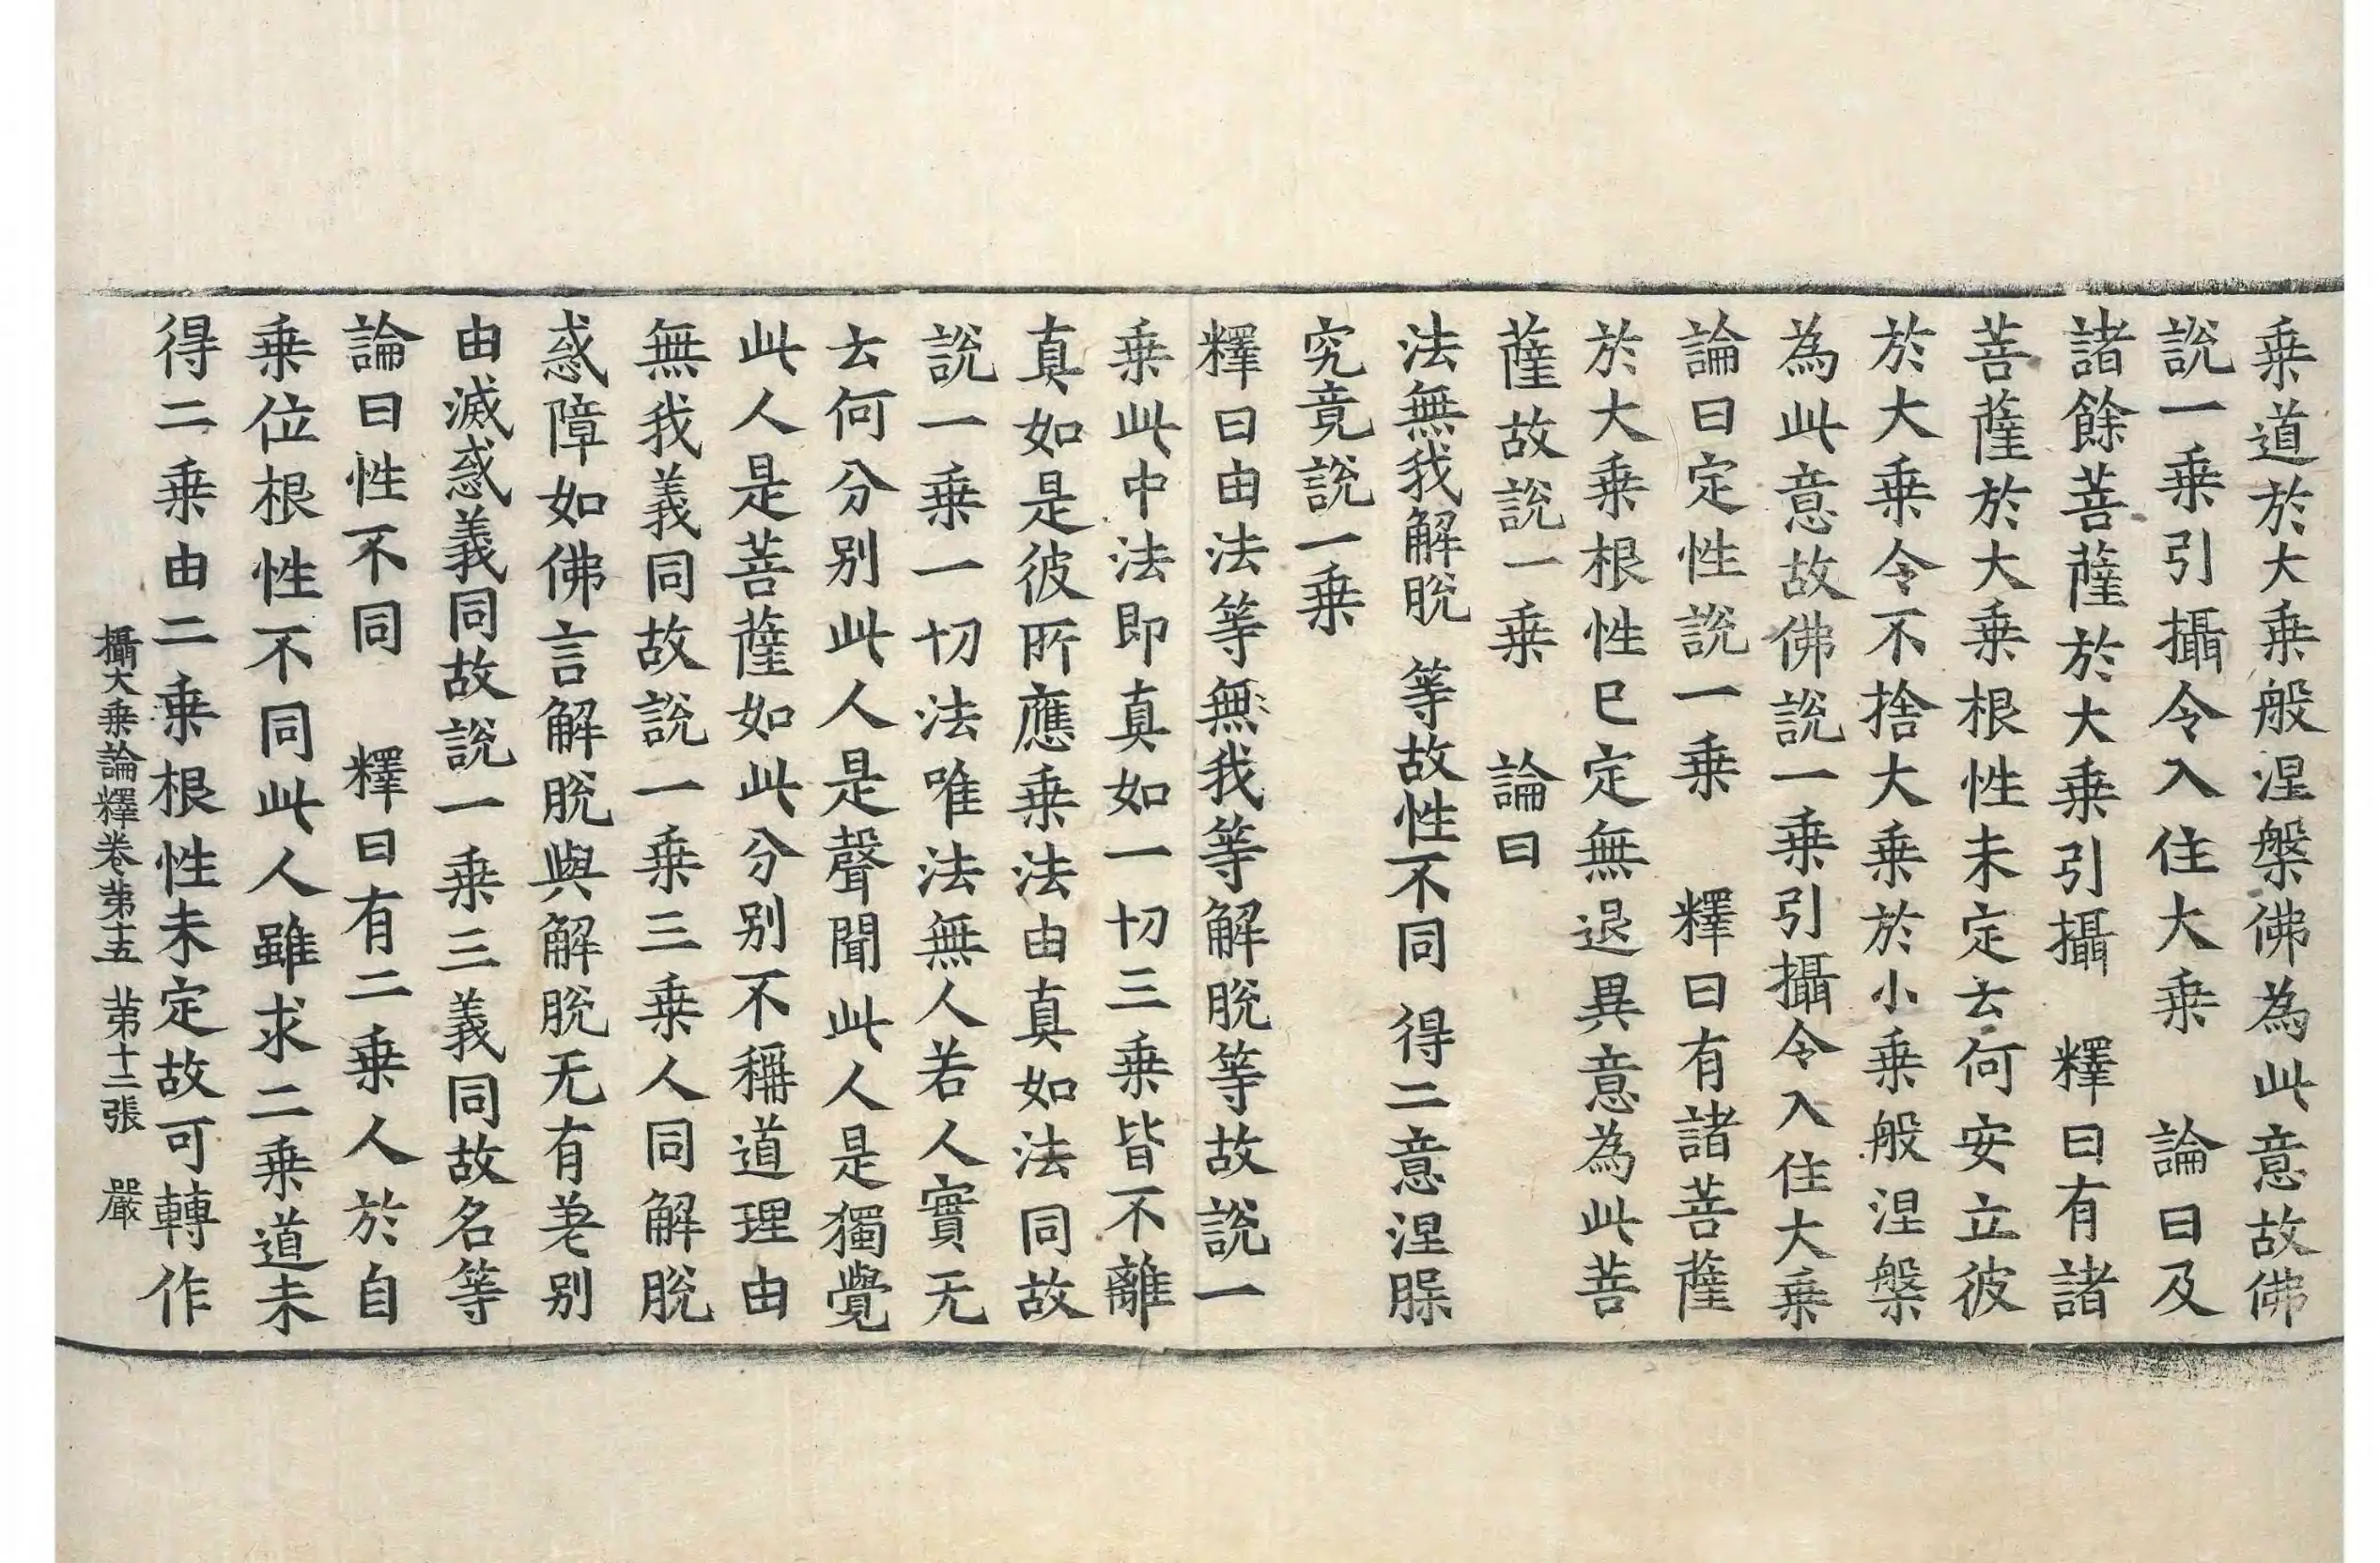 乗道於大乗般涅槃佛為此意故佛
說一乗引攝令入住大乗　論曰及
諸餘菩薩於大乗引攝　釋曰有諸
菩薩於大乗根性未定云何安立彼
於大乗令不捨大乗於小乗般涅槃
為此意故佛說一乗引攝令入住大乗
論曰定性說一乗　釋曰有諸菩薩
於大乗根性已定無退異意為此菩
薩故說一乗　論曰
法無我解脫　等故性不同　得二意涅槃
究竟說一乗
釋曰由法等無我等解脫等故說一
乗此中法即真如一切三乗皆不離
真如是彼所應乗法由真如法同故
說一乗一切法唯法無人若人實无
云何分别此人是聲聞此人是獨覺
此人是菩薩如此分别不稱道理由
無我義同故說一乗三乗人同解脫
惑障如佛言解脫與解脫无有差别
由滅惑義同故說一乗三義同故名等
論曰性不同　釋曰有二乗人於自
乗位根性不同此人雖求二乗道未
得二乗由二乗根性未定故可轉作
攝大乗論釋卷第十五　第十二張　嚴